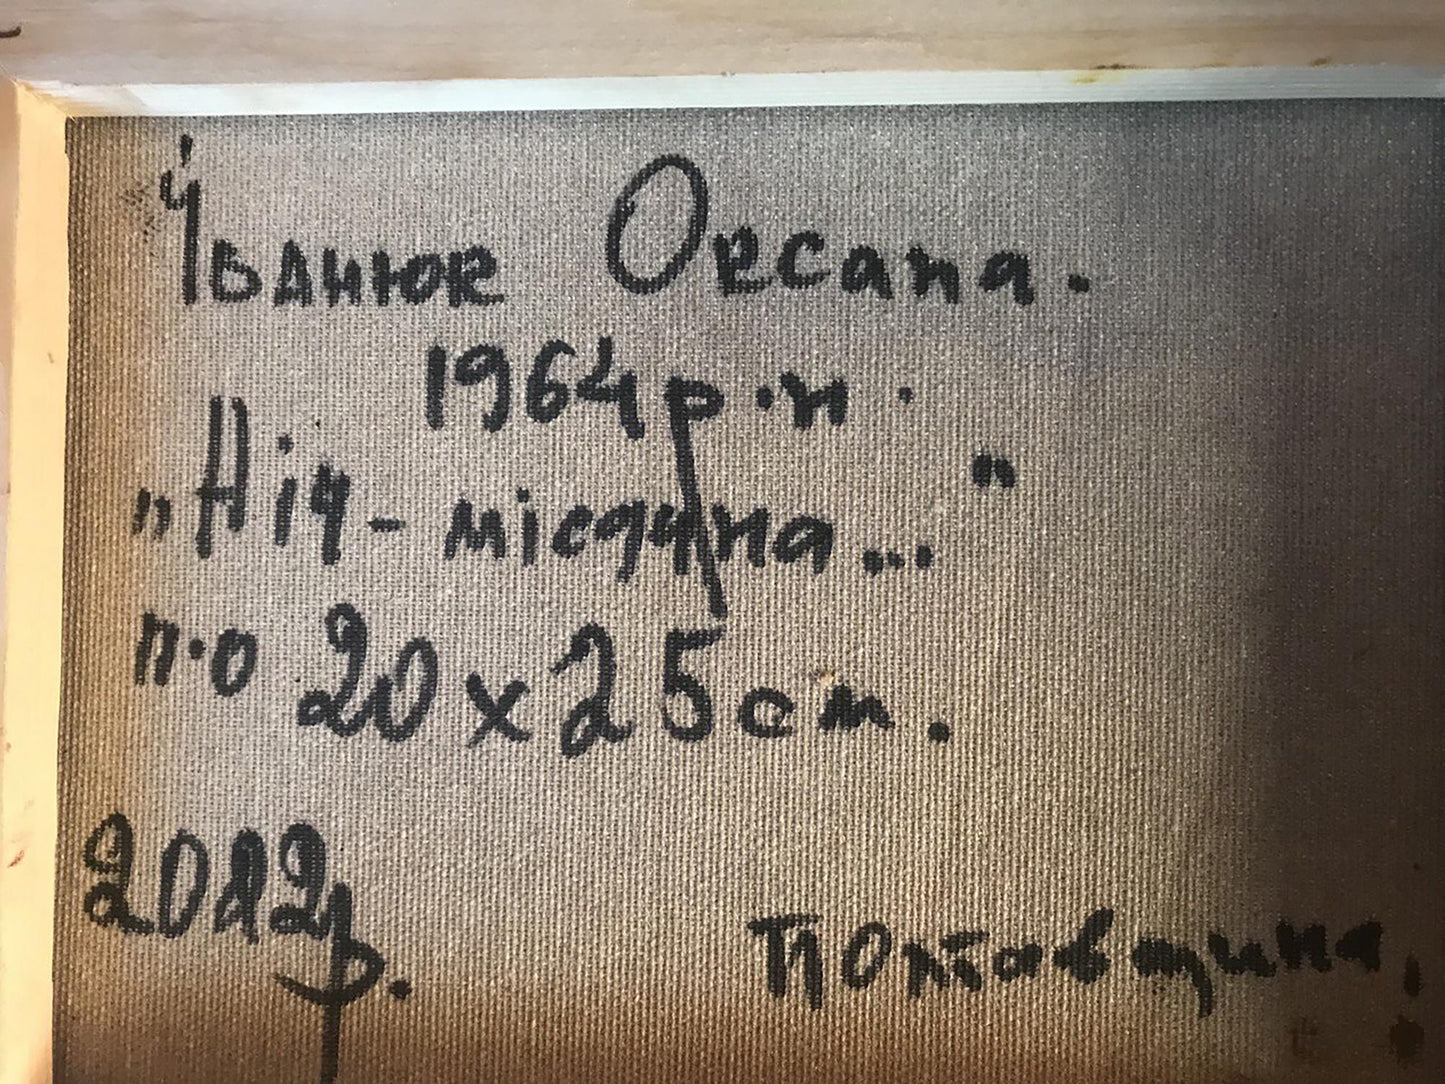 Іванюк Оксана.
1964 р.н.
„Ніч-місячна..."
п.о 20х25см.
2012р. Полтавщина!